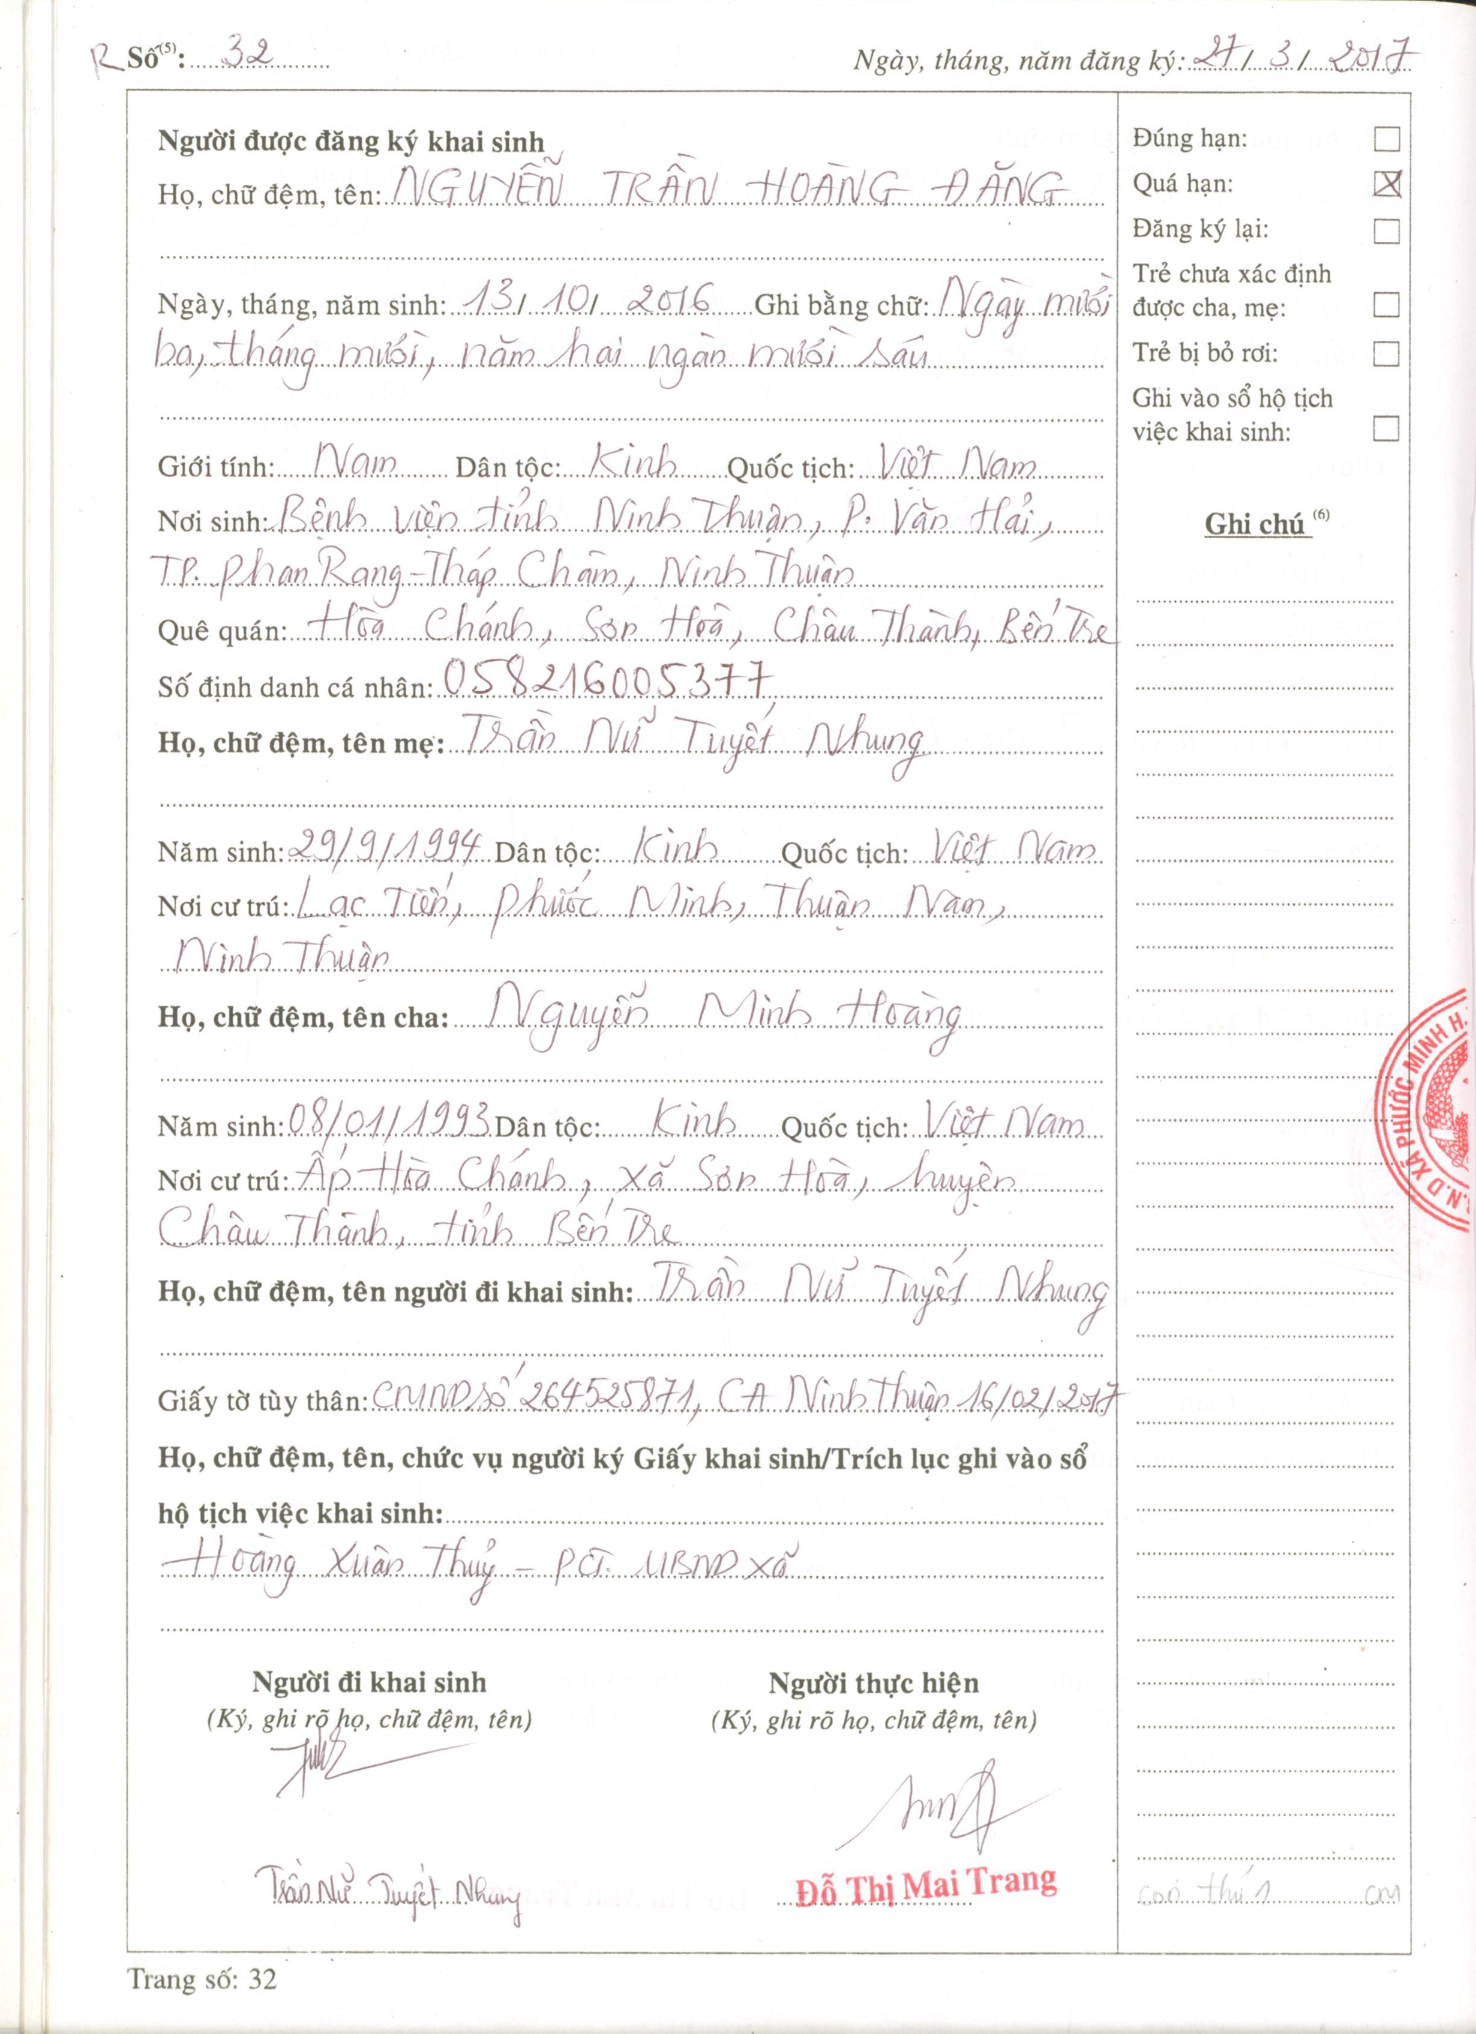 R Số(5): 32
Ngày, tháng, năm đăng ký: 27/ 3/ 2017
Người được đăng ký khai sinh
Họ, chữ đệm, tên: NGUYỄN TRẦN HOÀNG ĐĂNG
Ngày, tháng, năm sinh: 13/ 10/ 2016 Ghi bằng chữ: Ngày mười
ba, tháng mười, năm hai ngàn mười sáu
Giới tính: Nam Dân tộc: Kinh Quốc tịch: Việt Nam
Nơi sinh: Bệnh viện tỉnh Ninh Thuận, P. Văn Hải,
TP. Phan Rang-Tháp Chàm, Ninh Thuận
Quê quán: Hòa Chánh, Sơn Hoà, Châu Thành, Bến Tre
Số định danh cá nhân: 058216005377
Họ, chữ đệm, tên mẹ: Trần Nữ Tuyết Nhung
Năm sinh: 29/9/1994 Dân tộc: Kinh Quốc tịch: Việt Nam
Nơi cư trú: Lạc Tiến, Phước Minh, Thuận Nam,
Ninh Thuận
Họ, chữ đệm, tên cha: Nguyễn Minh Hoàng
Năm sinh: 08/01/1993 Dân tộc: Kinh Quốc tịch: Việt Nam
Nơi cư trú: Ấp Hòa Chánh, xã Sơn Hoà, huyện
Châu Thành, tỉnh Bến Tre
Họ, chữ đệm, tên người đi khai sinh: Trần Nữ Tuyết Nhung
Giấy tờ tùy thân: CMND số 264525871, CA Ninh Thuận 16/02/2017
Họ, chữ đệm, tên, chức vụ người ký Giấy khai sinh/Trích lục ghi vào sổ
hộ tịch việc khai sinh:
Hoàng Xuân Thuỷ - PCT. UBND xã
Người đi khai sinh
(Ký, ghi rõ họ, chữ đệm, tên)
Trần Nữ Tuyết Nhung
Người thực hiện
(Ký, ghi rõ họ, chữ đệm, tên)
Đỗ Thị Mai Trang
Đúng hạn:
Quá hạn:
Đăng ký lại:
Trẻ chưa xác định
được cha, mẹ:
Trẻ bị bỏ rơi:
Ghi vào sổ hộ tịch
việc khai sinh:
Ghi chú (6)
.N.D XÃ PHƯỚC MINH H.
con thứ 1
Trang số: 32